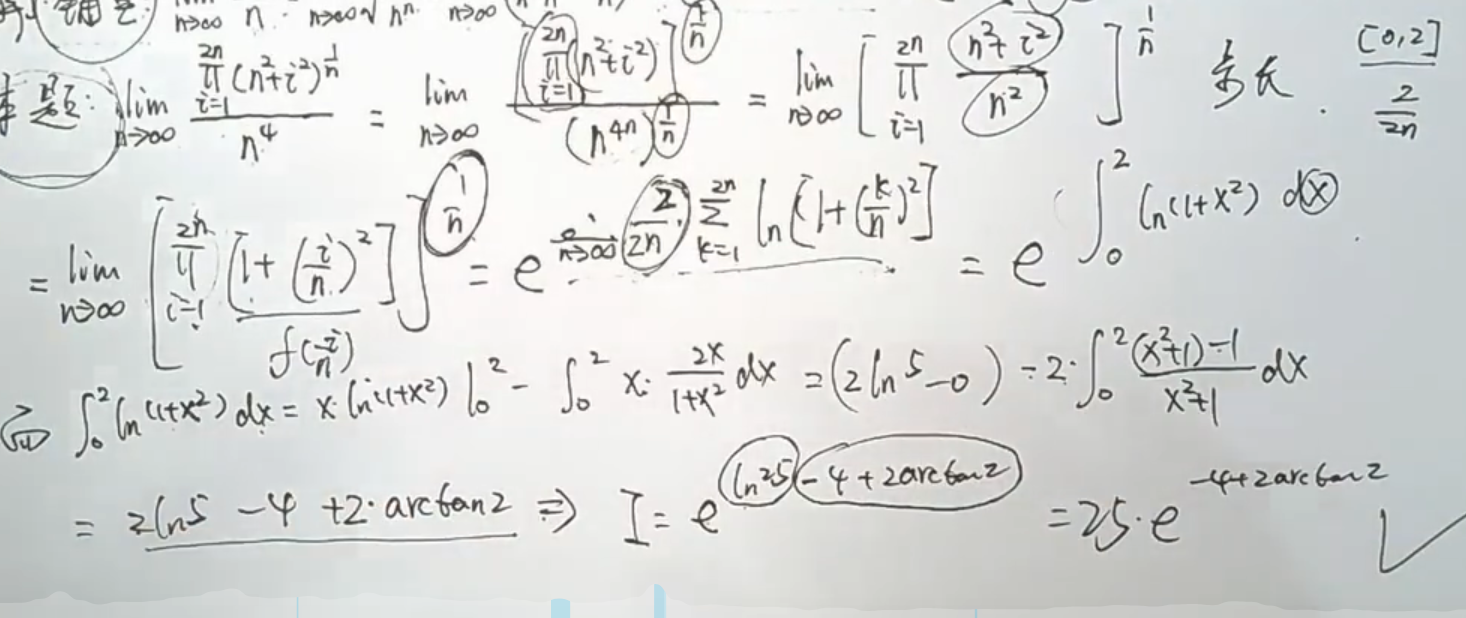 lim n→∞ n · lim n→∞ √ nⁿ lim n→∞
本题: lim n→∞ ∏_{i=1}^{2n} (n²+i²)^{1/n} / n⁴ = lim n→∞ [∏_{i=1}^{2n} (n²+i²)]^{1/n} / (n^{4n})^{1/n} = lim n→∞ [∏_{i=1}^{2n} (n²+i²)/n²]^{1/n} 步长. [0,2] 2/2n
= lim n→∞ [∏_{i=1}^{2n} [1+(i/n)²]]^{1/n} f(i/n) = e^{n→∞ 2/2n · ∑_{k=1}^{2n} ln[1+(k/n)²]} = e^{∫₀² ln(1+x²) dx}
而 ∫₀² ln(1+x²) dx = x·ln(1+x²)|₀² - ∫₀² x· 2x/(1+x²) dx = (2ln5-0) - 2·∫₀² ((x²+1)-1)/(x²+1) dx
= 2ln5 -4 +2·arctan2 ⇒ I = e^{ln25-4+2arctan2} = 25·e^{-4+2arctan2} ✓